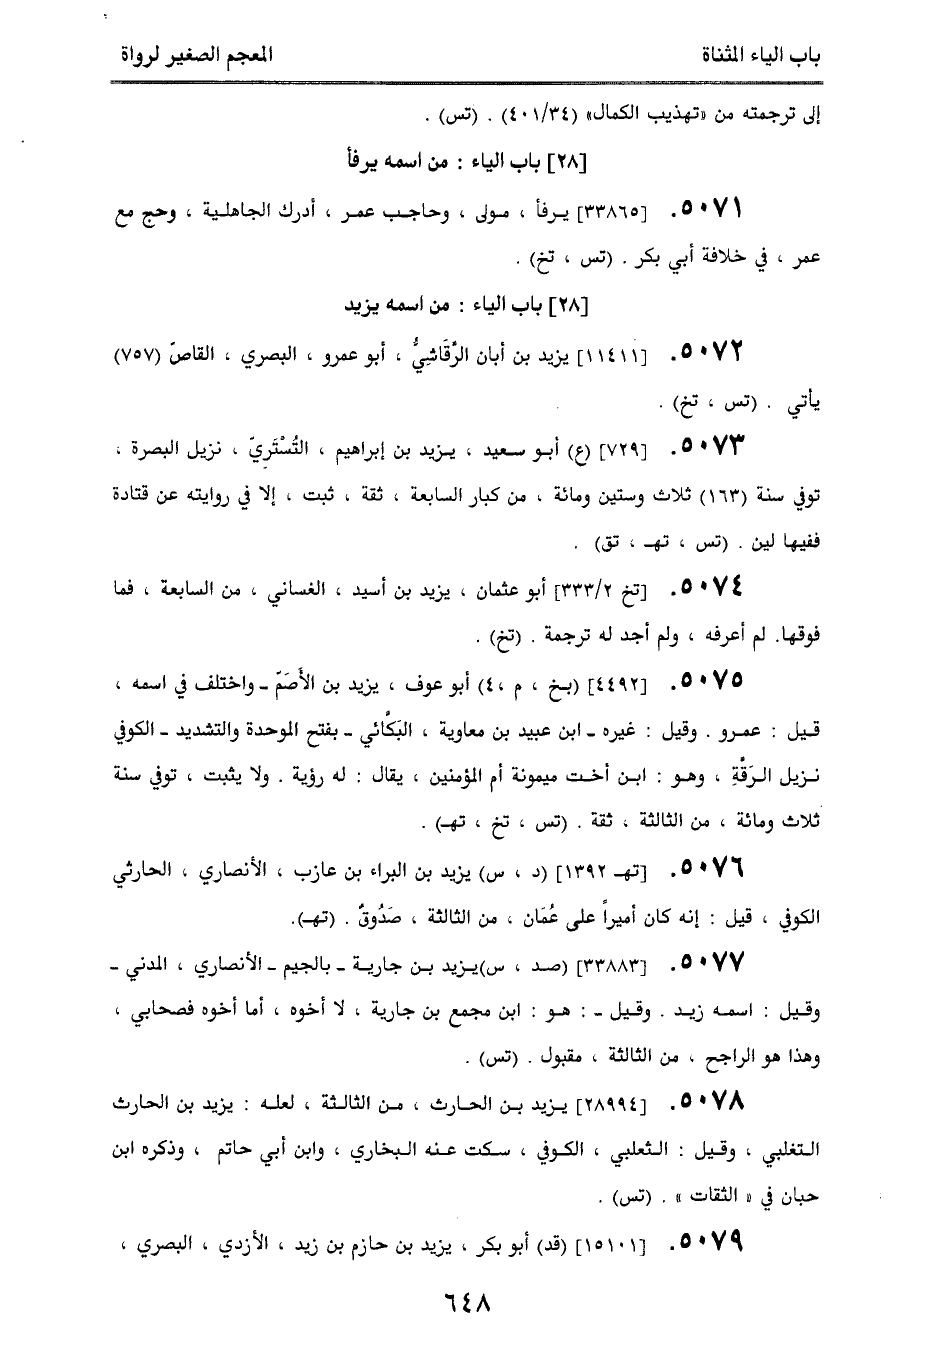 باب الياء المثناة المعجم الصغير لرواة
إلى ترجمته من «تهذيب الكمال» (٤٠١/٣٤) . (تس) .
[٢٨] باب الياء : من اسمه يرفأ
٥٠٧١. [٣٣٨٦٥] يرفأ ، مولى ، وحاجب عمر ، أدرك الجاهلية ، وحج مع
عمر ، في خلافة أبي بكر . (تس ، تخ) .
[٢٨] باب الياء : من اسمه يزيد
٥٠٧٢. [١١٤١١] يزيد بن أبان الرَّقَاشِيُّ ، أبو عمرو ، البصري ، القاصّ (٧٥٧)
يأتي . (تس ، تخ) .
٥٠٧٣. [٧٢٩] (ع) أبو سعيد ، يزيد بن إبراهيم ، التُسْتَرِيّ ، نزيل البصرة ،
توفي سنة (١٦٣) ثلاث وستين ومائة ، من كبار السابعة ، ثقة ، ثبت ، إلا في روايته عن قتادة
ففيها لين . (تس ، تهـ ، تق) .
٥٠٧٤. [تخ ٣٣٣/٢] أبو عثمان ، يزيد بن أسيد ، الغساني ، من السابعة ، فما
فوقها. لم أعرفه ، ولم أجد له ترجمة . (تخ) .
٥٠٧٥. [٤٤٩٢] (بخ ، م ،٤) أبو عوف ، يزيد بن الأَصَمّ ـ واختلف في اسمه ،
قيل : عمرو . وقيل : غيره ـ ابن عبيد بن معاوية ، البَكَّائي ـ بفتح الموحدة والتشديد ـ الكوفي
نزيل الرَقَّةِ ، وهو : ابن أخت ميمونة أم المؤمنين ، يقال : له رؤية . ولا يثبت ، توفي سنة
ثلاث ومائة ، من الثالثة ، ثقة . (تس ، تخ ، تهـ) .
٥٠٧٦. [تهـ ١٣٩٢] (د ، س) يزيد بن البراء بن عازب ، الأنصاري ، الحارثي
الكوفي ، قيل : إنه كان أميراً على عُمَان ، من الثالثة ، صَدُوقٌ . (تهـ).
٥٠٧٧. [٣٣٨٨٣] (صد ، س)يزيد بن جارية ـ بالجيم ـ الأنصاري ، المدني ـ
وقيل : اسمه زيد . وقيل ـ : هو : ابن مجمع بن جارية ، لا أخوه ، أما أخوه فصحابي ،
وهذا هو الراجح ، من الثالثة ، مقبول . (تس) .
٥٠٧٨. [٢٨٩٩٤] يزيد بن الحارث ، من الثالثة ، لعله : يزيد بن الحارث
التغلبي ، وقيل : الثعلبي ، الكوفي ، سكت عنه البخاري ، وابن أبي حاتم ، وذكره ابن
حبان في « الثقات » . (تس) .
٥٠٧٩. [١٥١٠١] (قد) أبو بكر ، يزيد بن حازم بن زيد ، الأزدي ، البصري ،
٦٤٨